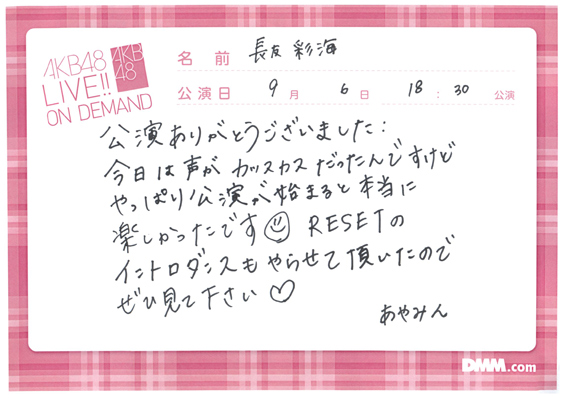 AKB48
LIVE!!
ON DEMAND
AKB
48
名前 長友彩海
公演日 9月 6日 18:30 公演
公演ありがとうございました:
今日は声がカッスカスだったんですけど
やっぱり公演が始まると本当に
楽しかったです☺ RESETの
イントロダンスもやらせて頂いたので
ぜひ見て下さい♡
あやみん
DMM.com